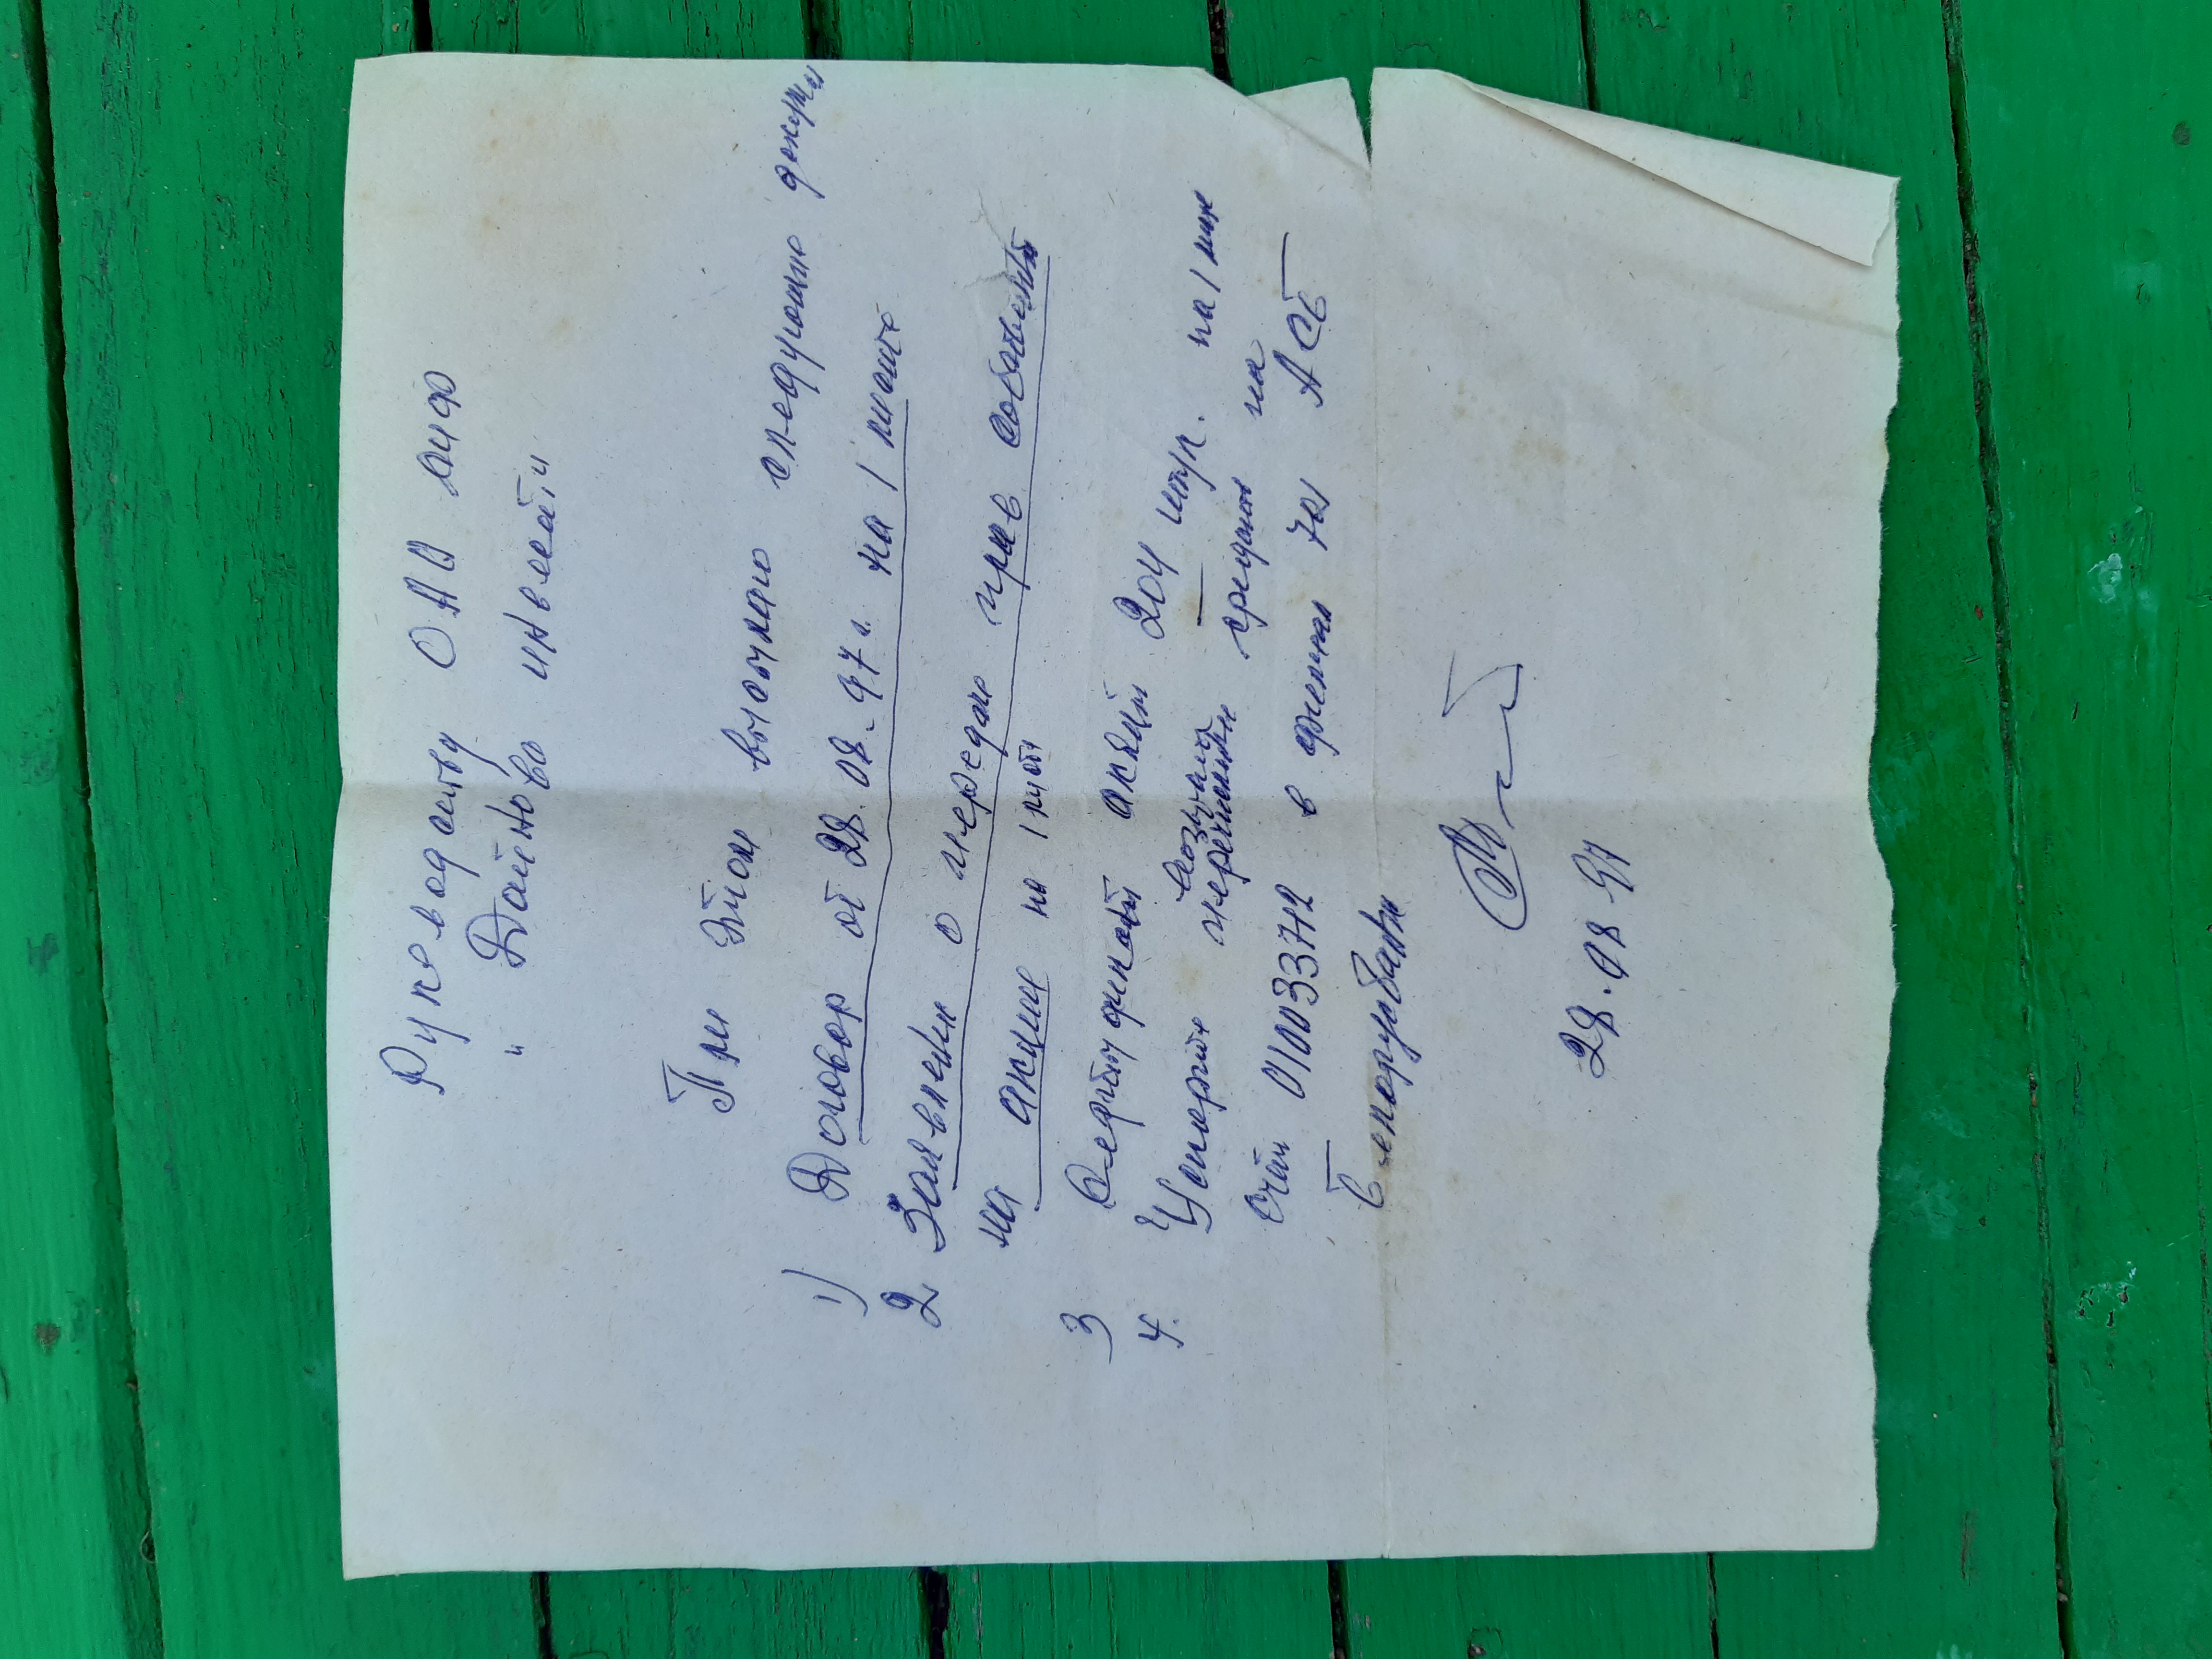 Руководству ОАО
"Дайнова инвест"
При этом высылаю следующие докумты
1) Договор от 28.08.97 г. на 1 листе
2 Заявление о передаче прав собственности
на акции на 1 листе
3 Сертификат акций 204 штук. на 1 листе
4. Ускорите перечисление средств на
счёт в филиал 701 АСБ
Беларусбанк
28.08 97